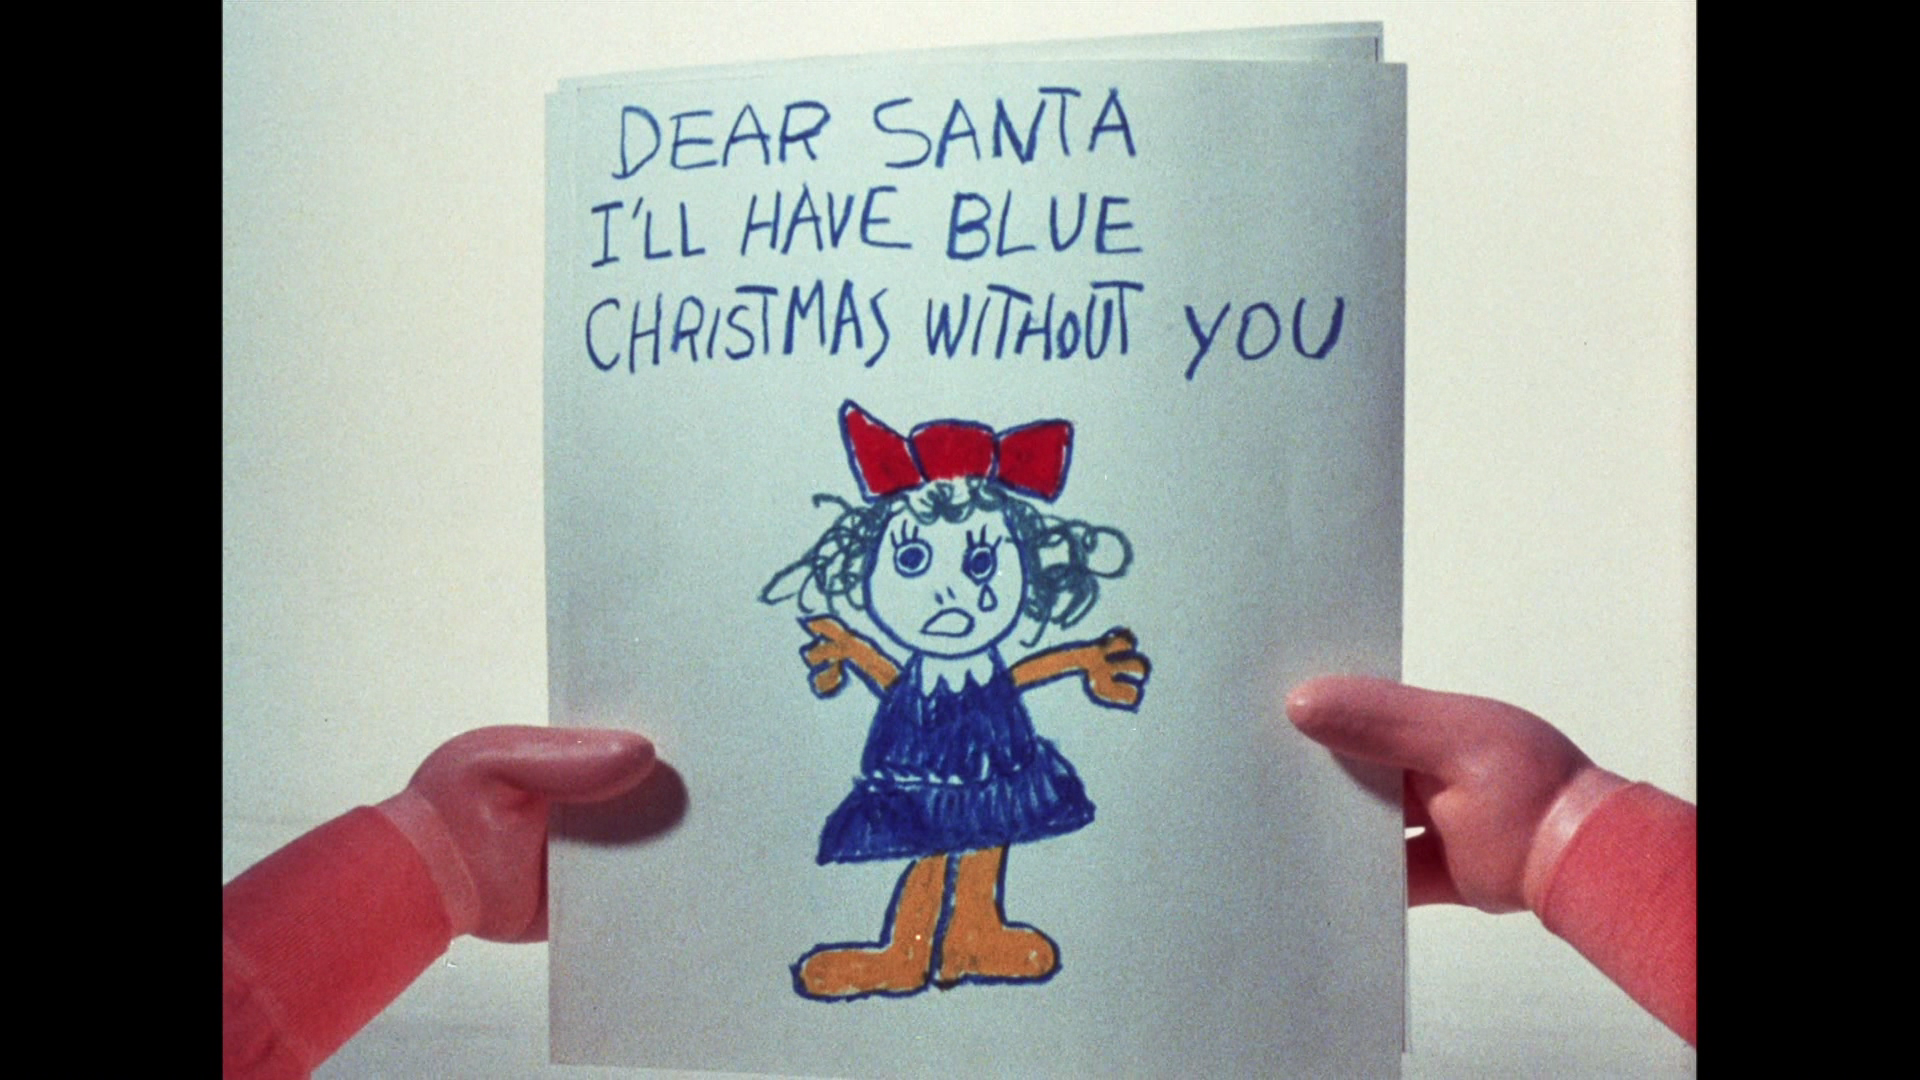 DEAR SANTA
I'LL HAVE BLUE
CHRISTMAS WITHOUT YOU